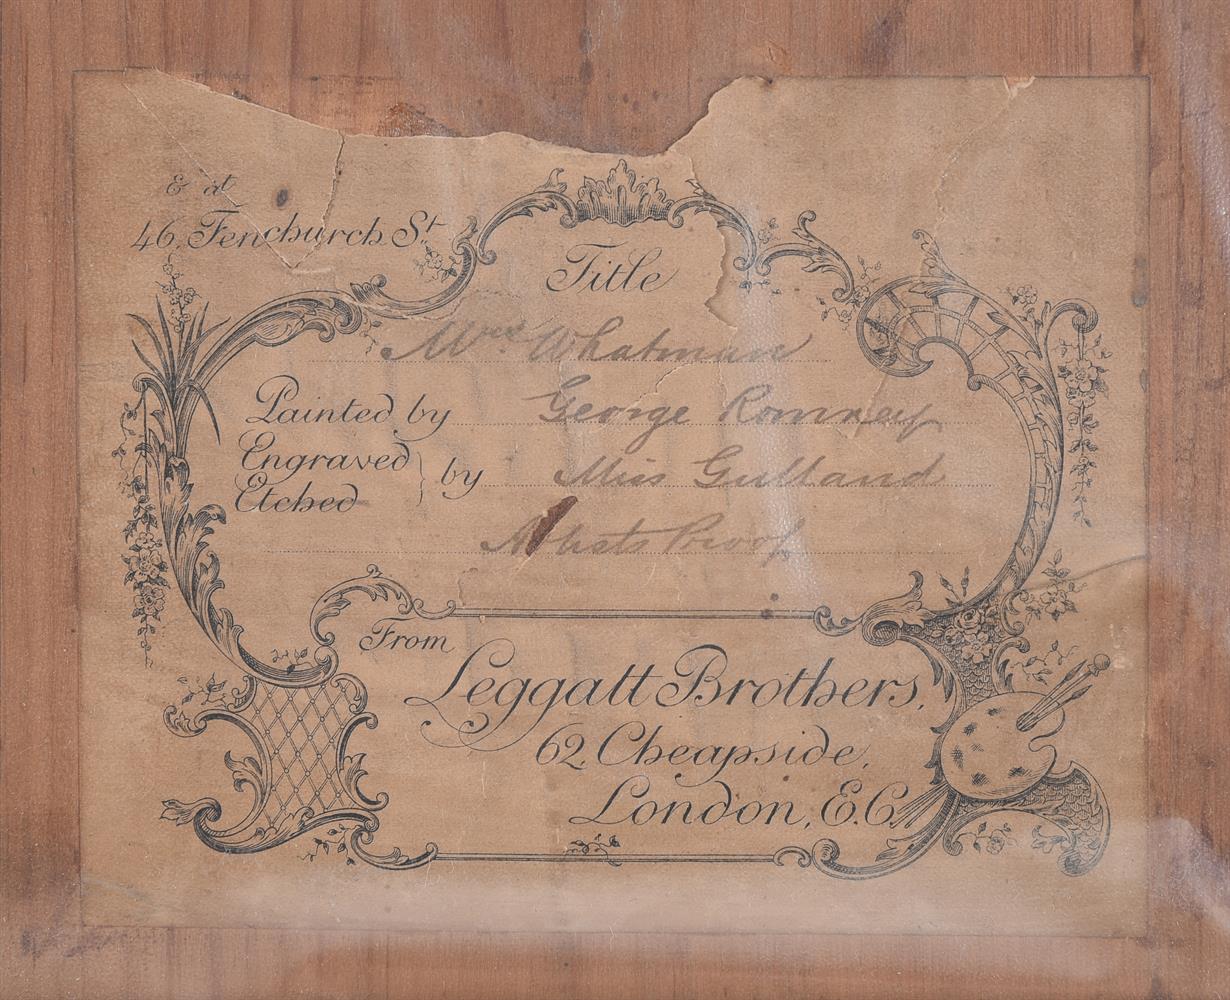 & at
46, Fenchurch St.
Title
Mrs Whatman
Painted by George Romney
Engraved
Etched } by Miss Gulland
Artists Proof
From
Leggatt Brothers,
62, Cheapside,
London, E.C.